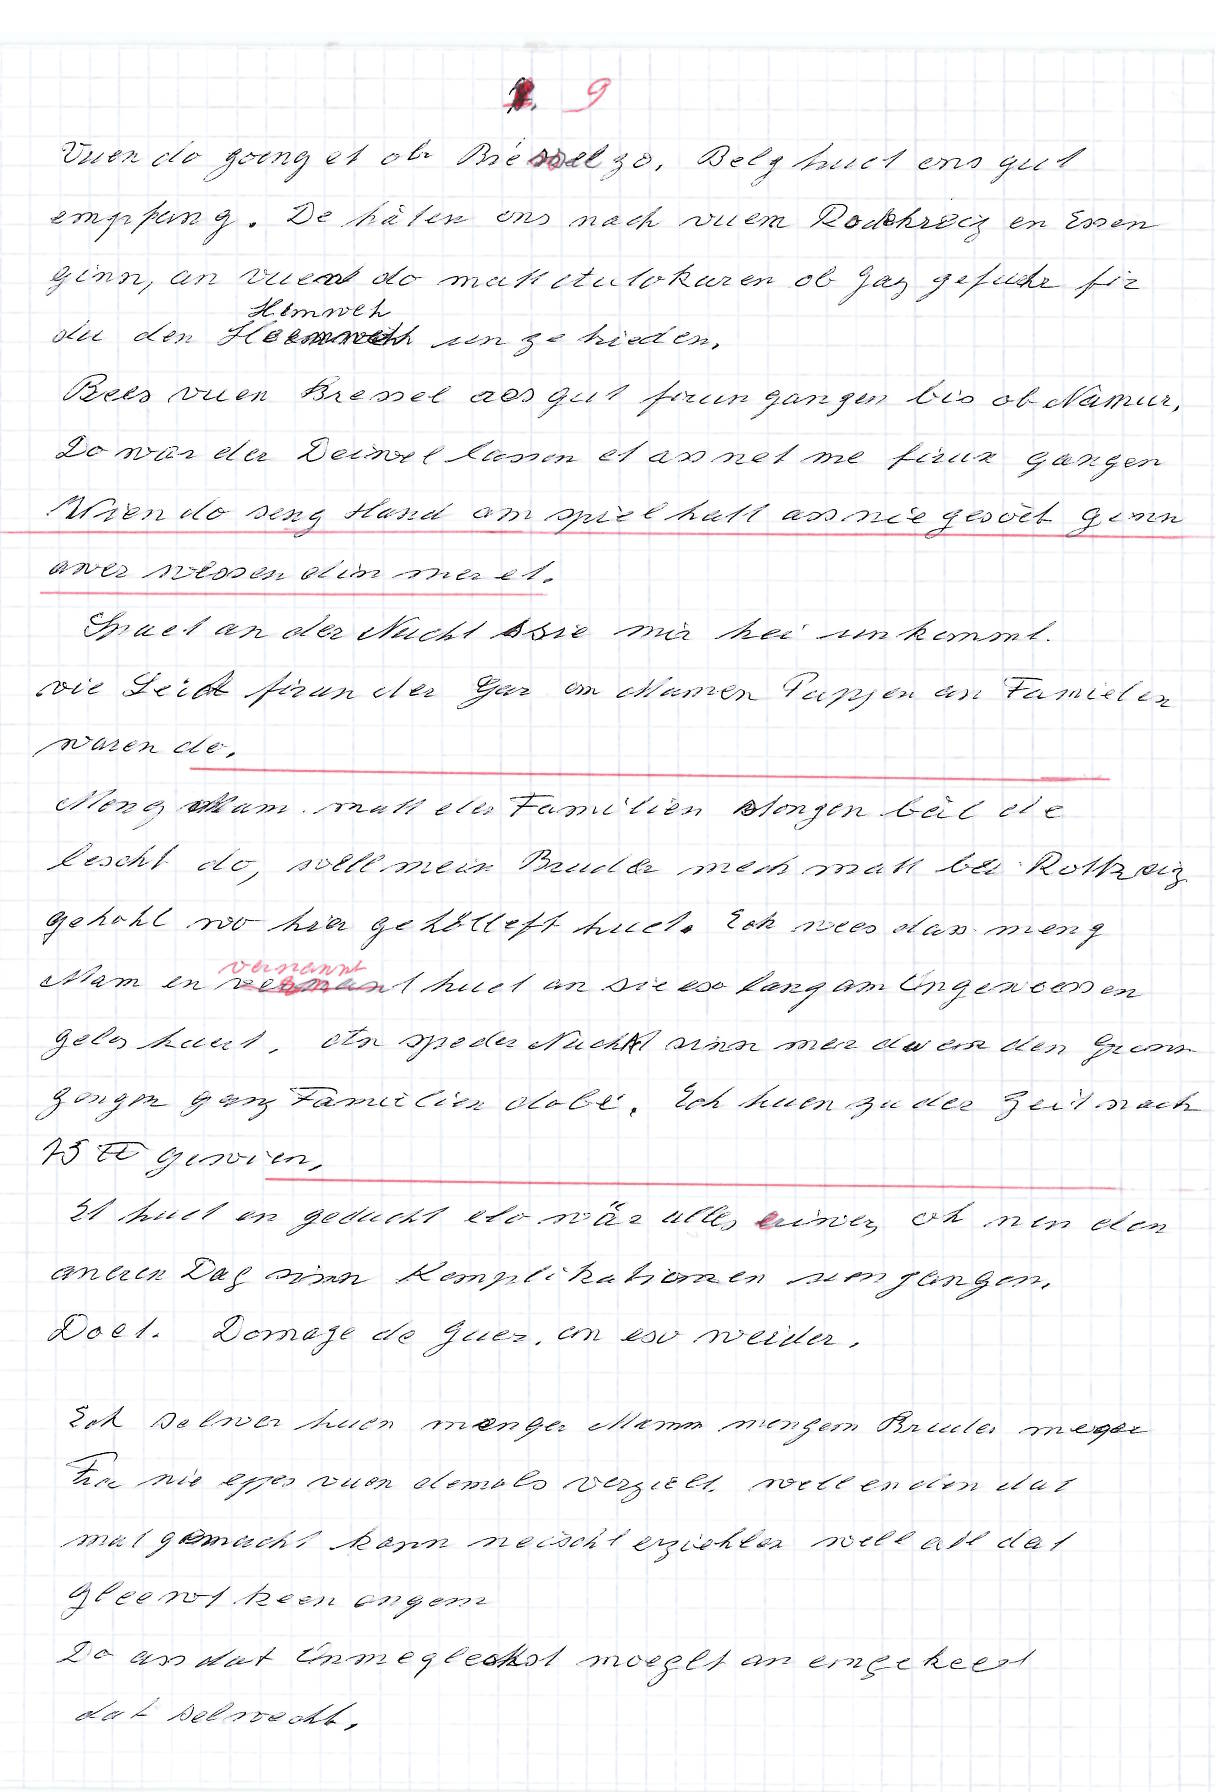 9
Vuen do goung et ob Bressel zo. Belg huet ons gut
empfang. De häten ons nach vuem Rodekreiz en Essen
ginn, an vuen do matt Autokaren ob Gaz gefuehr fir
Hemweh
du den un ze hieden.
Bees vuen Bressel ass gut firun gangen bis ob Namur,
Do war der Deiwel lassen et ass net me firun gangen
Wien do seng Hand am spiel hatt ass nie gesoet ginn
awer wessen din mer et.
Spaet an der Nacht sie mir hei un kommt.
vie Leit firun der Gar on Mamen Pappen an Familien
waren do.
Meng Mam matt der Familien stongen bäl die
lescht do, well mein Bruder mech matt bei Rottkreiz
gehohl wo hier gehölleft huet. Ech wees dass meng
vernannt
Mam en huet an sie eso lang am Ungewessen
geloss huet. An speder Nacht sinn mer duer den Gronn
gangen ganz Familien dobei. Ech huen zu der Zeit nach
75 ℔ gewien,
Et huet en geducht elo wär alles eriwer, oh nen den
aneren Dag sinn Komplikationen un gangen.
Doet. Domage de Guer, an eso weider.
Ech selwer huen menger Mamm mengem Bruder meger
Fra nie eppes vuen demols verzielt. well en den dat
mat gemacht kann neischt erziehlen well all dat
gleewt keen engem
Do ass dat Unmeglechst moeglt an emgekeert
dat selwecht.